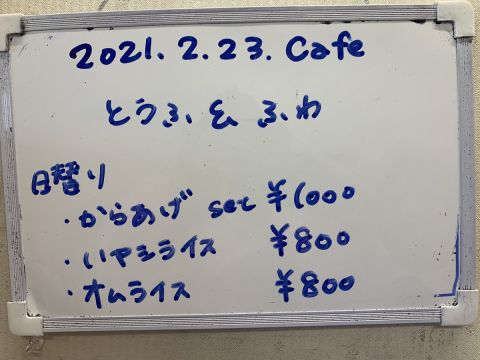 2021.2.23. Cafe
とうふ & ふわ
日替り
・からあげ set ¥1000
・ハヤシライス ¥800
・オムライス ¥800